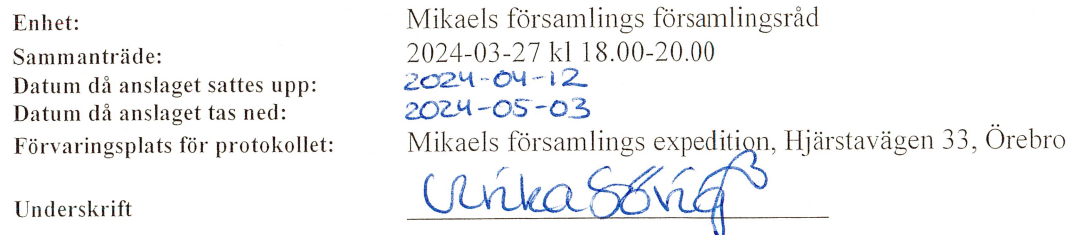 Enhet: Mikaels församlings församlingsråd
Sammanträde: 2024-03-27 kl 18.00-20.00
Datum då anslaget sattes upp: 2024-04-12
Datum då anslaget tas ned: 2024-05-03
Förvaringsplats för protokollet: Mikaels församlings expedition, Hjärstavägen 33, Örebro
Underskrift Ulrika